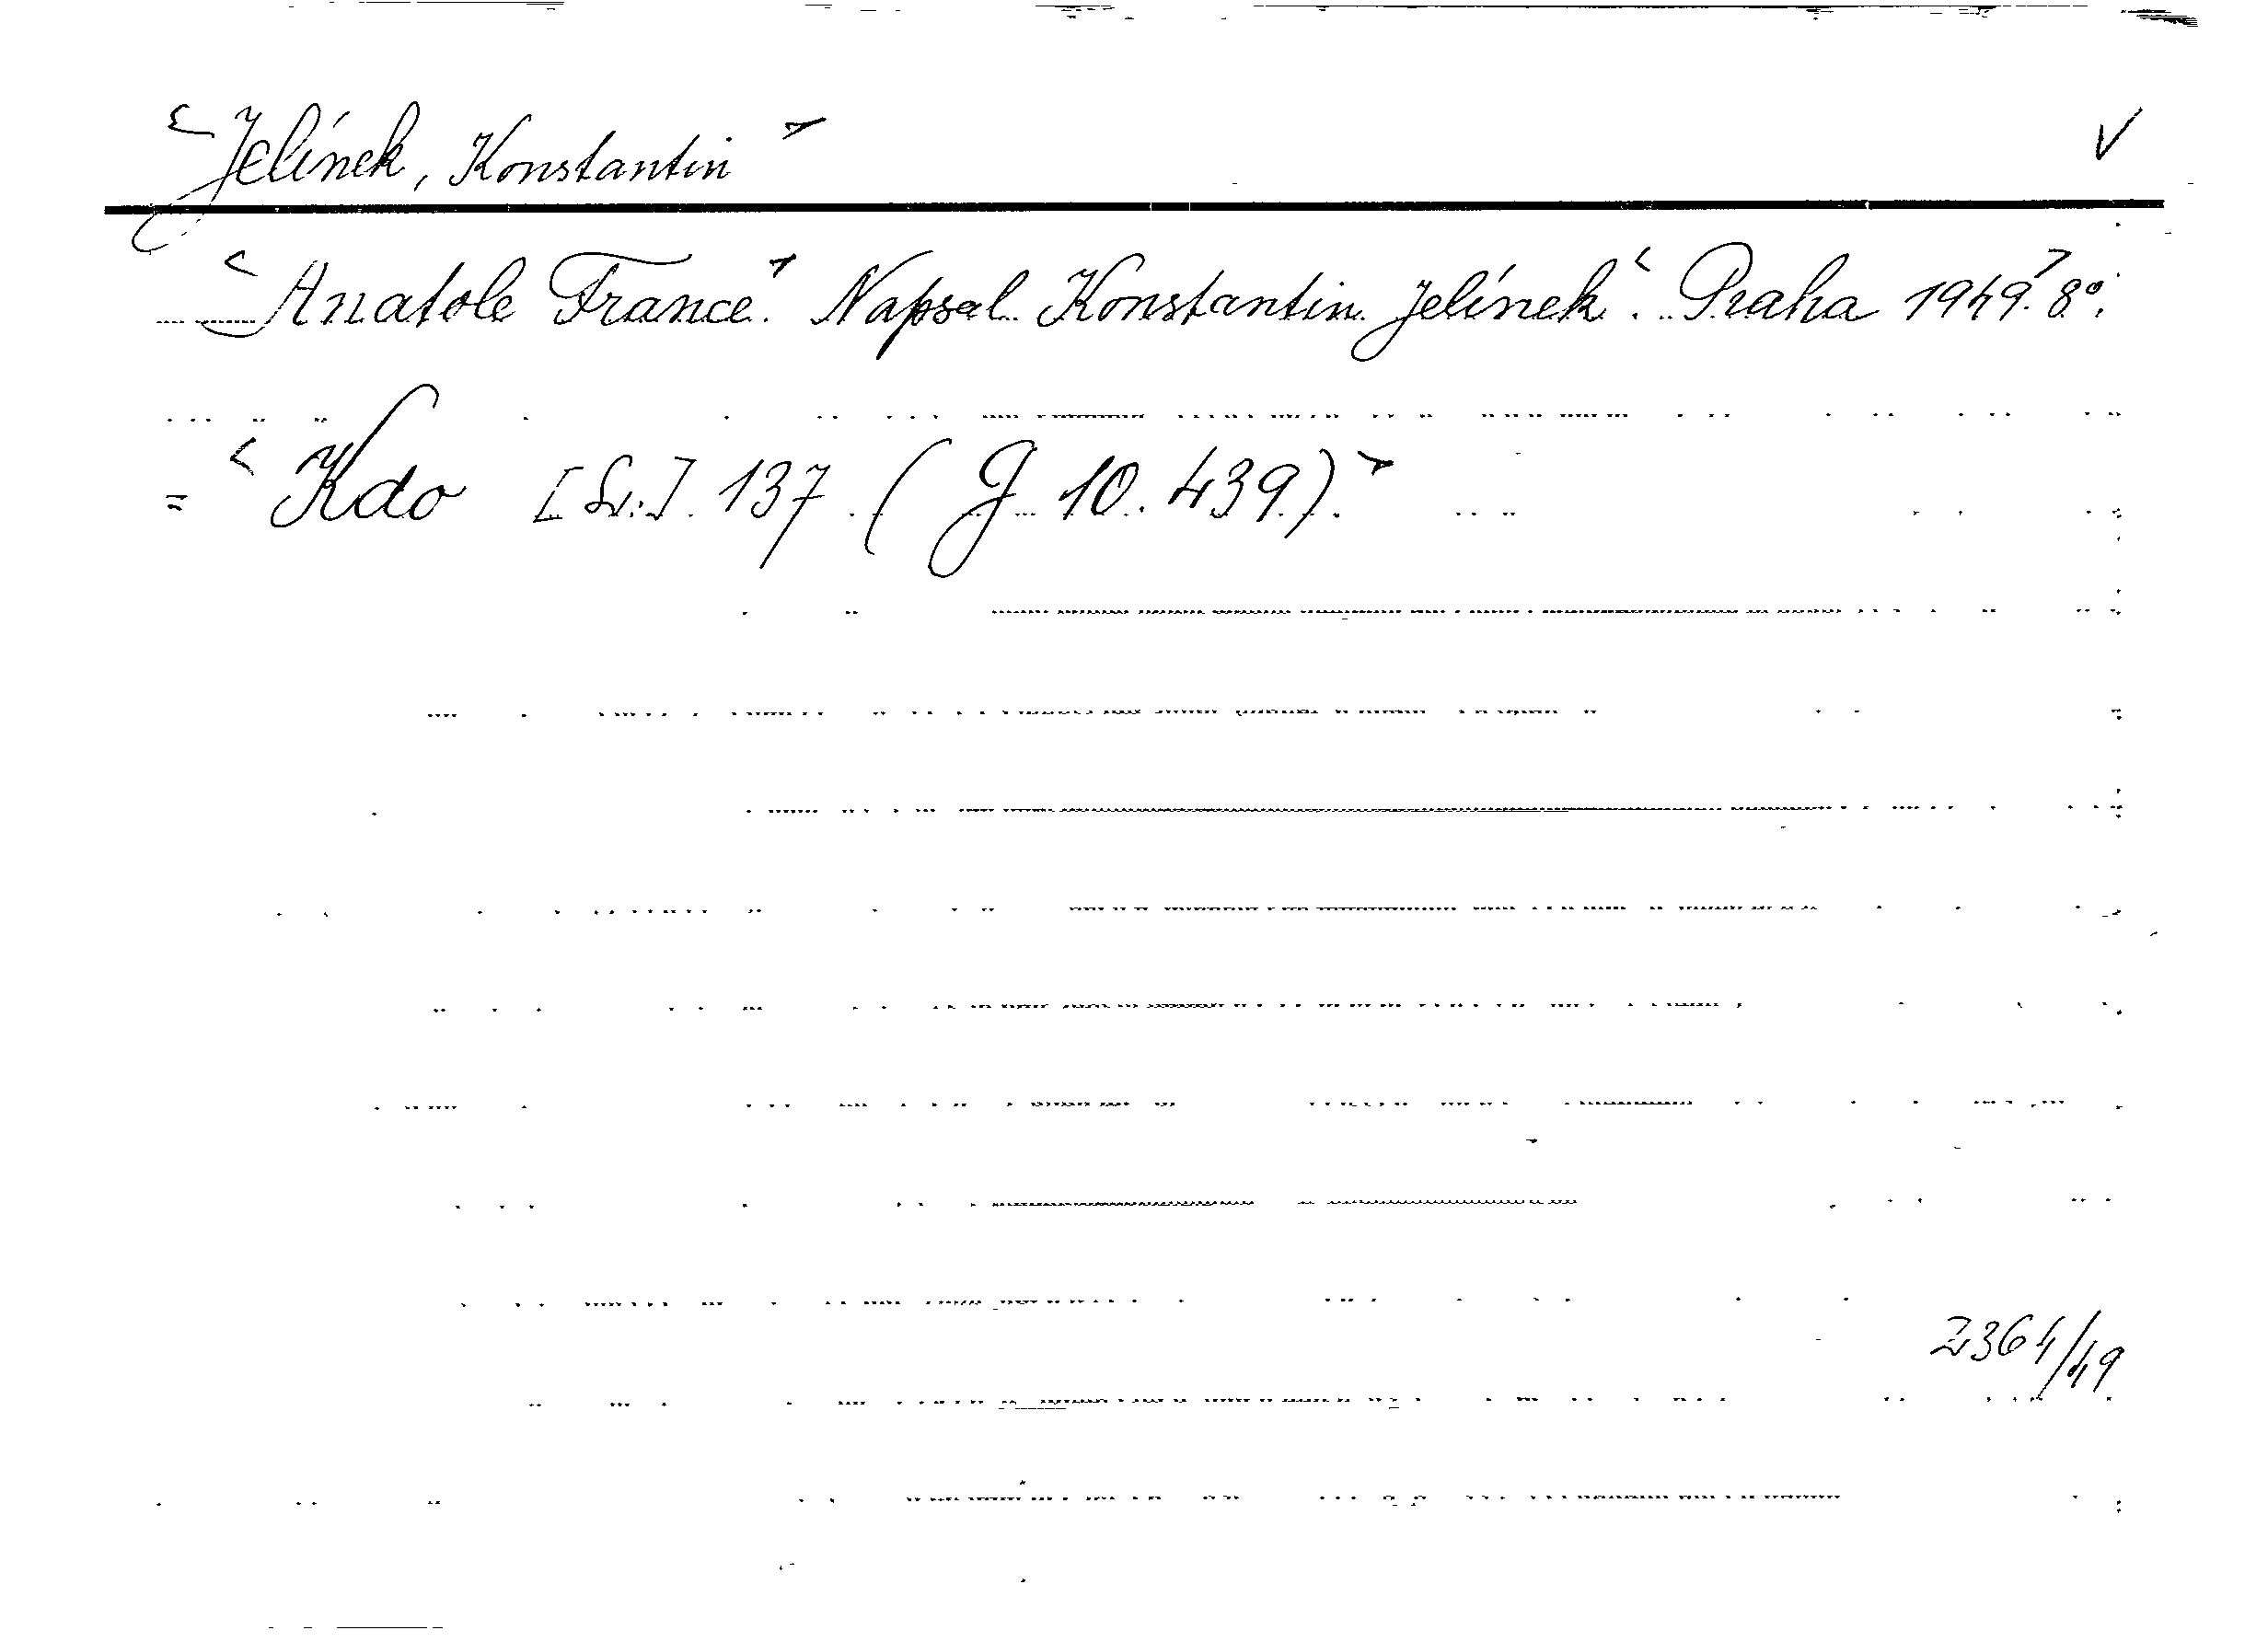 <Jelínek, Konstantin> V
<Anatole France.> Napsal Konstantin Jelínek. <Praha 1949.> 8°.
= <Kdo [Sv.] 137 (J 10.439).>
2364/49